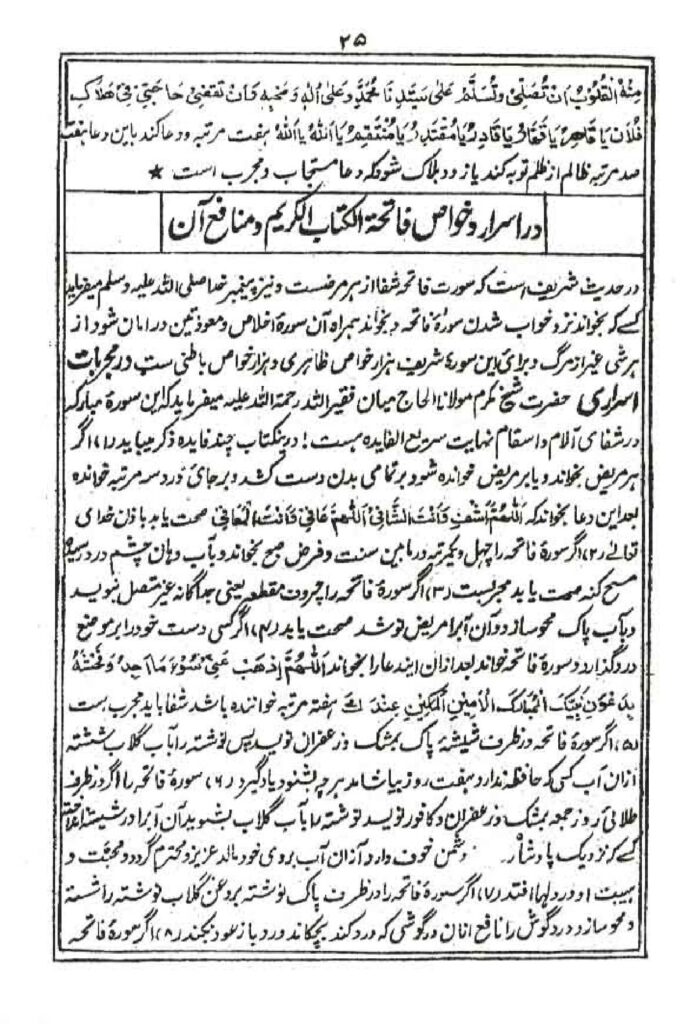 ۲۵
مِنْهُ الْقُلُوبُ اَنْ تُصَلِّیَ وَتُسَلِّمَ عَلیٰ سَیِّدِنَا مُحَمَّدٍ وَّعَلیٰ اٰلِهٖ وَصَحْبِهٖ وَاَنْ تَقْضِیَ حَاجَتِیْ فِیْ هَلَاکِ
فُلَان یَا قَاهِرُ یَا قَهَّارُ یَا قَادِرُ یَا مُقْتَدِرُ یَا مُنْتَقِمُ یَا اَللهُ یَا اَللهُ هفت مرتبه و دعا کند باین دعا هفت
صد مرتبه ظالم از ظلم توبه کند یا زود هلاک شود که دعا مستجاب و مجرب است ★
در اسرار و خواص فاتحة الکتاب الکریم و منافع آن
در حدیث شریف است که سورت فاتحه شفا از هر مرضست و نیز پیغمبر خدا صلی الله علیه وسلم میفرماید
کسے که بخواند نزد خواب شدن سورۀ فاتحه و بخواند همراه آن سورۀ اخلاص و معوذتین در امان شود از
هر شی غیر از مرگ و برای این سورۀ شریف هزار خواص ظاهری و هزار خواص باطنی ست در مجربات
اسراری حضرت شیخ مکرم مولانا الحاج میان فقیرالله رحمة الله علیه میفرماید که این سورۀ مبارکه
در شفای آلام و اسقام نهایت سریع الفایده هست! درینکتاب چند فایده ذکر میباید (۱) اگر
هر مریض بخواند و یا بر مریض خوانده شود و بر تمامی بدن دست کشد و بر جائ درد سه مرتبه خوانده
بعد این دعا بخواند که اَللّٰهُمَّ اشْفِ وَاَنْتَ الشَّافِیْ اَللّٰهُمَّ عَافِیْ وَاَنْتَ الْمَعَافِیْ صحت یابد باذن خدای
تعالے (۲) اگر سورۀ فاتحه را چهل و یکمرتبه در مابین سنت و فرض صبح بخواند و بآب دهان چشم درد رسیده
مسح کند صحت یابد مجربست (۳) اگر سورۀ فاتحه را بحروف مقطعه یعنی جداگانه غیر متصل بنویسد
و بآب پاک محو سازد و آن آبرا مریض نوشد صحت یابد (۴) اگر کسی دست خود را بر موضع
درد گزارد و سورۀ فاتحه خواند بعد ازان ایندعا را بخواند اَللّٰهُمَّ اِذْهَبْ عَنِّیْ سُوْءَ مَا اَجِدُ وَفُحْشَهٗ
بِدَعْوَةِ نَبِیِّکَ الْمُبَارَکِ الْاَمِیْنِ الْمَکِیْنِ عِنْدَکَ هفته مرتبه خواننده باشد شفا یابد مجرب ست
(۵) اگر سورۀ فاتحه در ظرف شیشۀ پاک بمشک و زعفران نویسد پس نوشته را بآب گلاب شسته
ازان آب کسی که حافظه ندارد هفت روز بیاشامد هر چه بشنود یاد گیرد (۶) سورۀ فاتحه را اگر در ظرف
طلائی روز جمعه بمشک و زعفران و کافور نویسد نوشته را بآب گلاب بشوید آن آبرا در شیشه
کسے که نزدیک پادشاه دشمن خوف دارد ازان آب بروی خود مالد عزیز و محترم گردد و محبت و
هیبت او در دلها افتد (۷) اگر سورۀ فاتحه را در ظرف پاک نوشته بروغن گلاب نوشته را شسته
و محو سازد و درد گوش را نافع اتان در گوشی که درد کند بچکاند درد باز عود نکند (۸) اگر سورۀ فاتحه